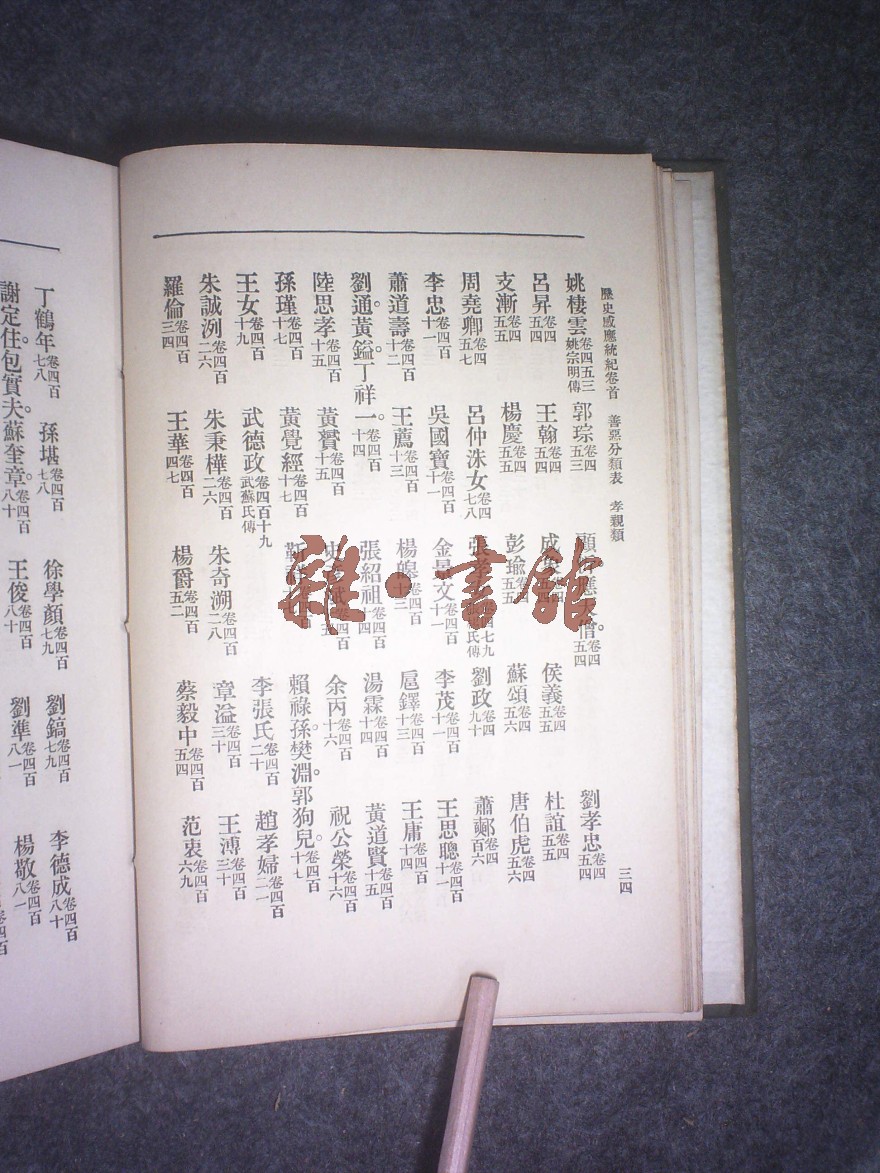 歷史感應統紀卷首　善惡分類表　孝親類　三四
姚棲雲卷四五三姚宗明傳　郭琮卷四五三　應　僧。卷四五四　劉孝忠卷四五四
呂昇卷四五四　王翰卷四五四　成　侯義卷四五五　杜誼卷四五五
支漸卷四五五　楊慶卷四五五　彭瑜五五　蘇頌卷四五六　唐伯虎卷四五六
周堯卿卷四五七　呂仲洙女卷四七八　張　四七九　氏傳　劉政卷四九十　蕭郟卷四百六
李忠卷四百十一　吳國寶卷四百十一　金　文卷四百十一　李茂卷四百十一　王思聰卷四百十一
蕭道壽卷四百十二　王薦卷四百十三　楊皞卷四百十三　扈鐸卷四百十三　王庸卷四百十四
劉通。黃鎰。丁祥一。卷四百十四　張紹祖卷四百十四　湯霖卷四百十四　黃道賢卷四百十五
陸思孝卷四百十五　黃贇卷四百十五　卷四百　余丙卷四百十六　祝公榮卷四百十六
孫瑾卷四百十七　黃覺經卷四百十七　靳　百　賴祿孫。樊淵。郭狗兒。卷四百十七
王女卷四百十九　武德政卷四百十九武蘇氏傳　李張氏卷四百二十　趙孝婦卷四百二一
朱誠洌卷四百二六　朱秉樺卷四百二六　朱奇溯卷四百二八　章溢卷四百三十　王溥卷四百三十
羅倫卷四百三四　王華卷四百四七　楊爵卷四百五二　蔡毅中卷四百五四　范衷卷四百六九
丁鶴年卷四百七八　孫堪卷四百七八　徐學顏卷四百七九　劉鎬卷四百七九　李德成卷四百八十
謝定住。包實夫。蘇奎章。卷四百八十　王俊卷四百八十　劉準卷四百八一　楊敬卷四百八一
卷四百
雜·書館